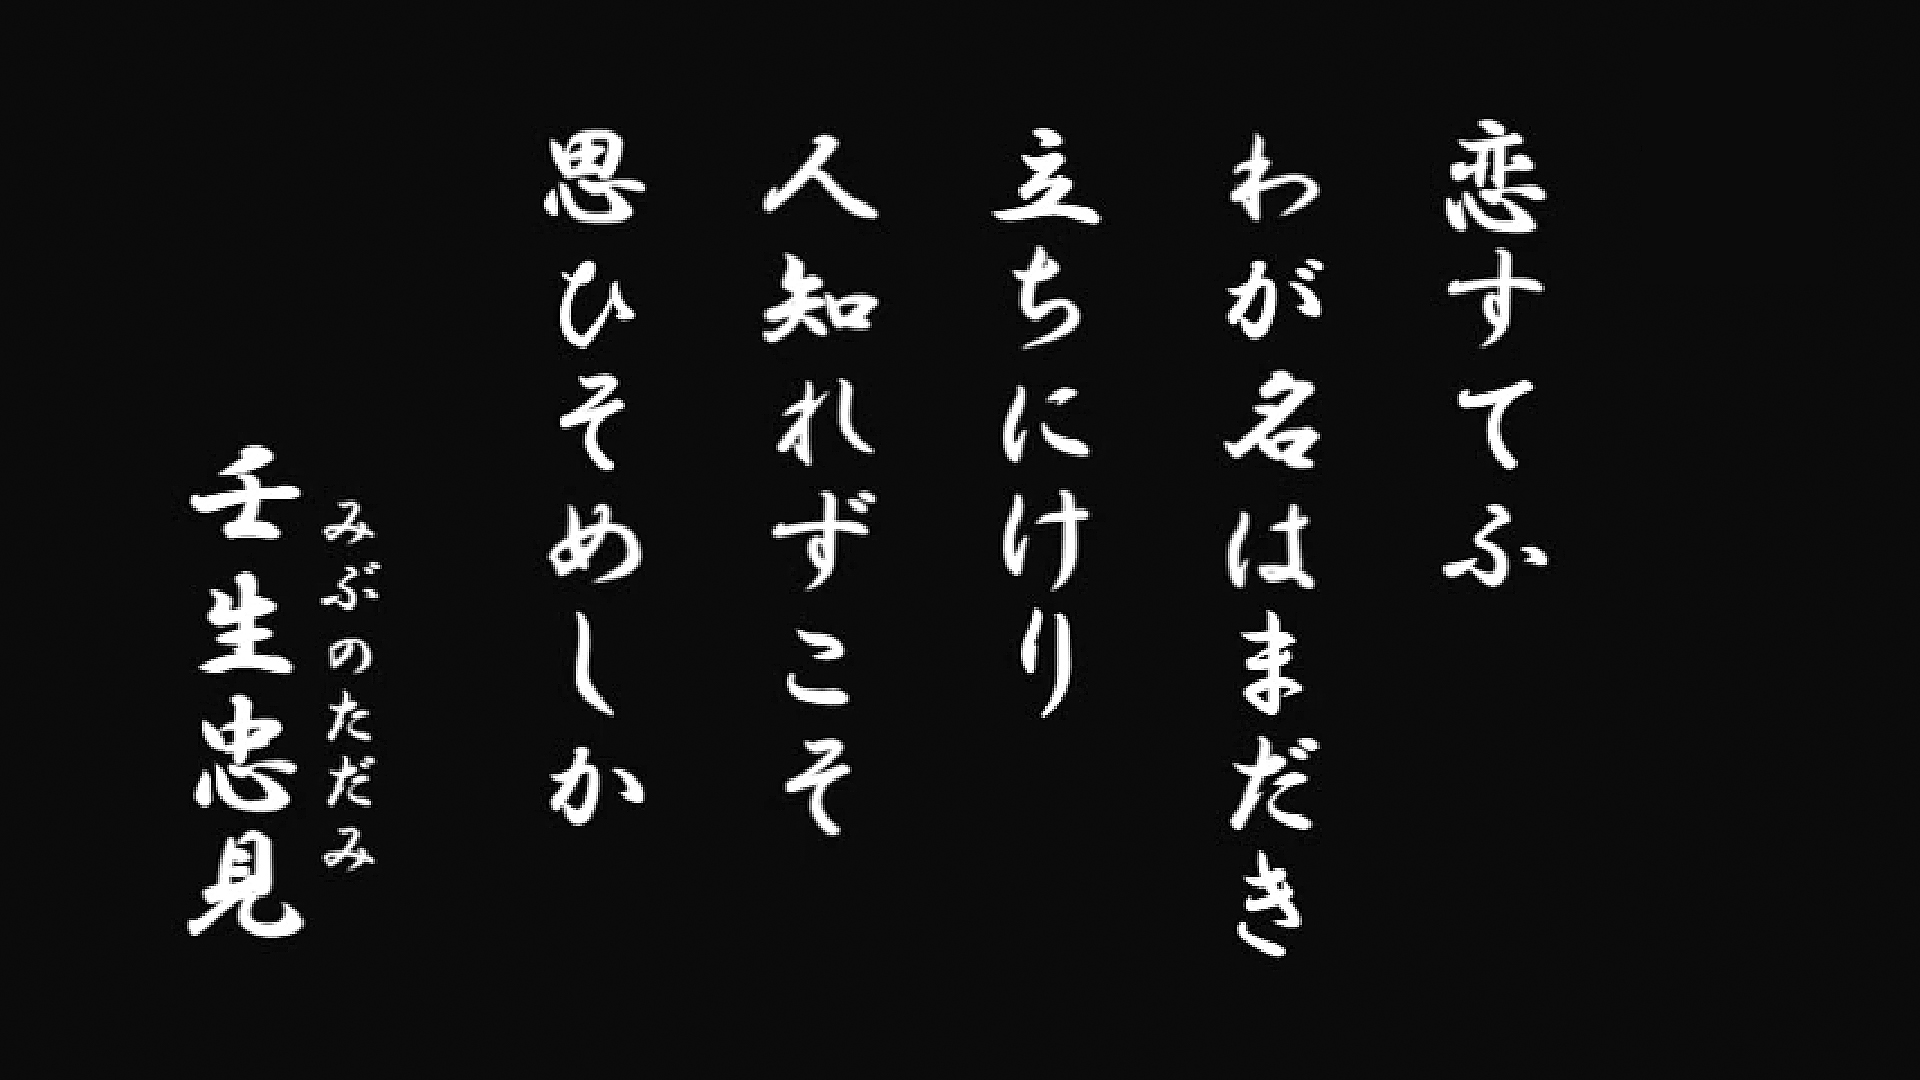 恋すてふ
わが名はまだき
立ちにけり
人知れずこそ
思ひそめしか
みぶのただみ
壬生忠見